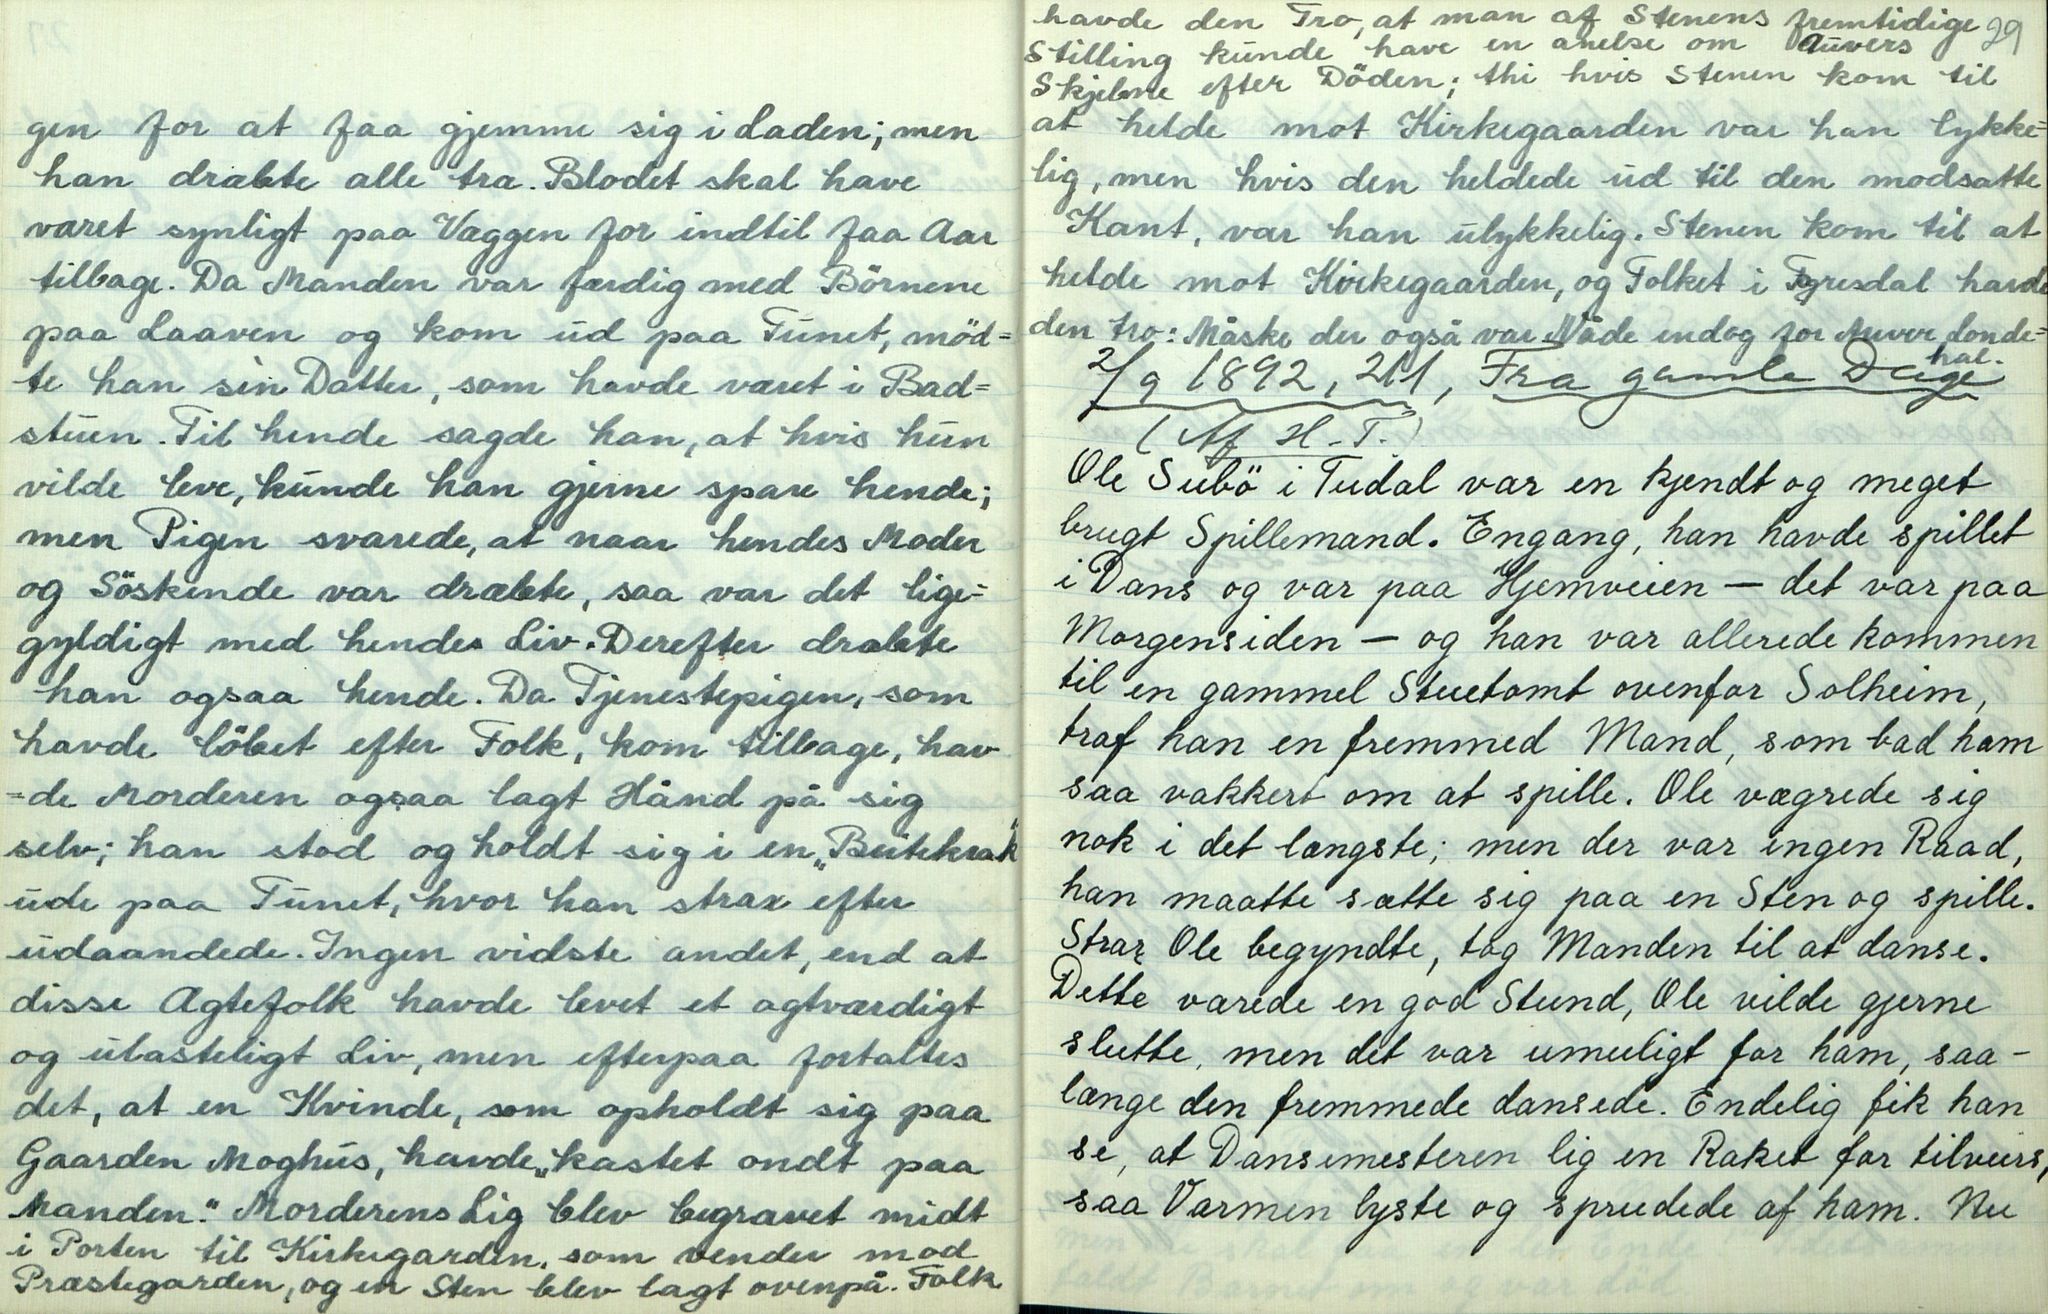 gen for at faa gjemme sig i Laden; men
han dræbte alle tre. Blodet skal have
været synligt paa Væggen for indtil faa Aar
tilbage. Da Manden var færdig med Börnene
paa Laaven og kom ud paa Tunet, möd=
te han sin Datter, som havde været i Bad=
stuen. Til hende sagde han, at hvis hun
vilde leve, kunde han gjerne spare hende;
men Pigen svarede, at naar hendes Moder
og Söskende var dræbte, saa var det lige=
gyldigt med hendes Liv. Derefter dræbte
han ogsaa hende. Da Tjenestepigen, som
havde löbet efter Folk, kom tilbage, hav
=de Morderen ogsaa lagt Hånd på sig
selv; han stod og holdt sig i en „Beitekrak"
ude paa Tunet, hvor han strax efter
udaandede. Ingen vidste andet, end at
disse Ægtefolk havde levet et agtværdigt
og ulasteligt Liv, men efterpaa fortaltes
det, at en Kvinde, som opholdt sig paa
Gaarden Moghus, havde „kastet ondt paa
Manden." Morderens Lig blev begravet midt
i Porten til Kirkegarden, som vender mod
Præstegarden, og en Sten blev lagt ovenpå. Folk
29
havde den Tro, at man af Stenens fremtidige
Stilling kunde have en anelse om Auvers
Skjebne efter Döden; thi hvis Stenen kom til
at helde mot Kirkegaarden var han lykke=
lig, men hvis den heldede ud til den modsatte
Kant, var han ulykkelig. Stenen kom til at
helde mot Kirkegaarden, og Folket i Fyresdal havde
den tro: Måske der også var Nåde endog for Auver Londe=
hal.
2/9 1892, 211, Fra gamle Dage
(Af H. T.)
Ole Subö i Tudal var en kjendt og meget
brugt Spillemand. Engang, han havde spillet
i Dans og var paa Hjemveien — det var paa
Morgensiden — og han var allerede kommen
til en gammel Stuetomt ovenfor Solheim,
traf han en fremmed Mand, som bad ham
saa vakkert om at spille. Ole vægrede sig
nok i det længste; men der var ingen Raad,
han maatte sætte sig paa en Sten og spille.
Strax Ole begyndte, tog Manden til at danse.
Dette varede en god Stund, Ole vilde gjerne
slutte, men det var umuligt for ham, saa-
længe den fremmede dansede. Endelig fik han
se, at Dansemesteren lig en Raket for tilveirs,
saa Varmen lyste og sprudede af ham. Nu